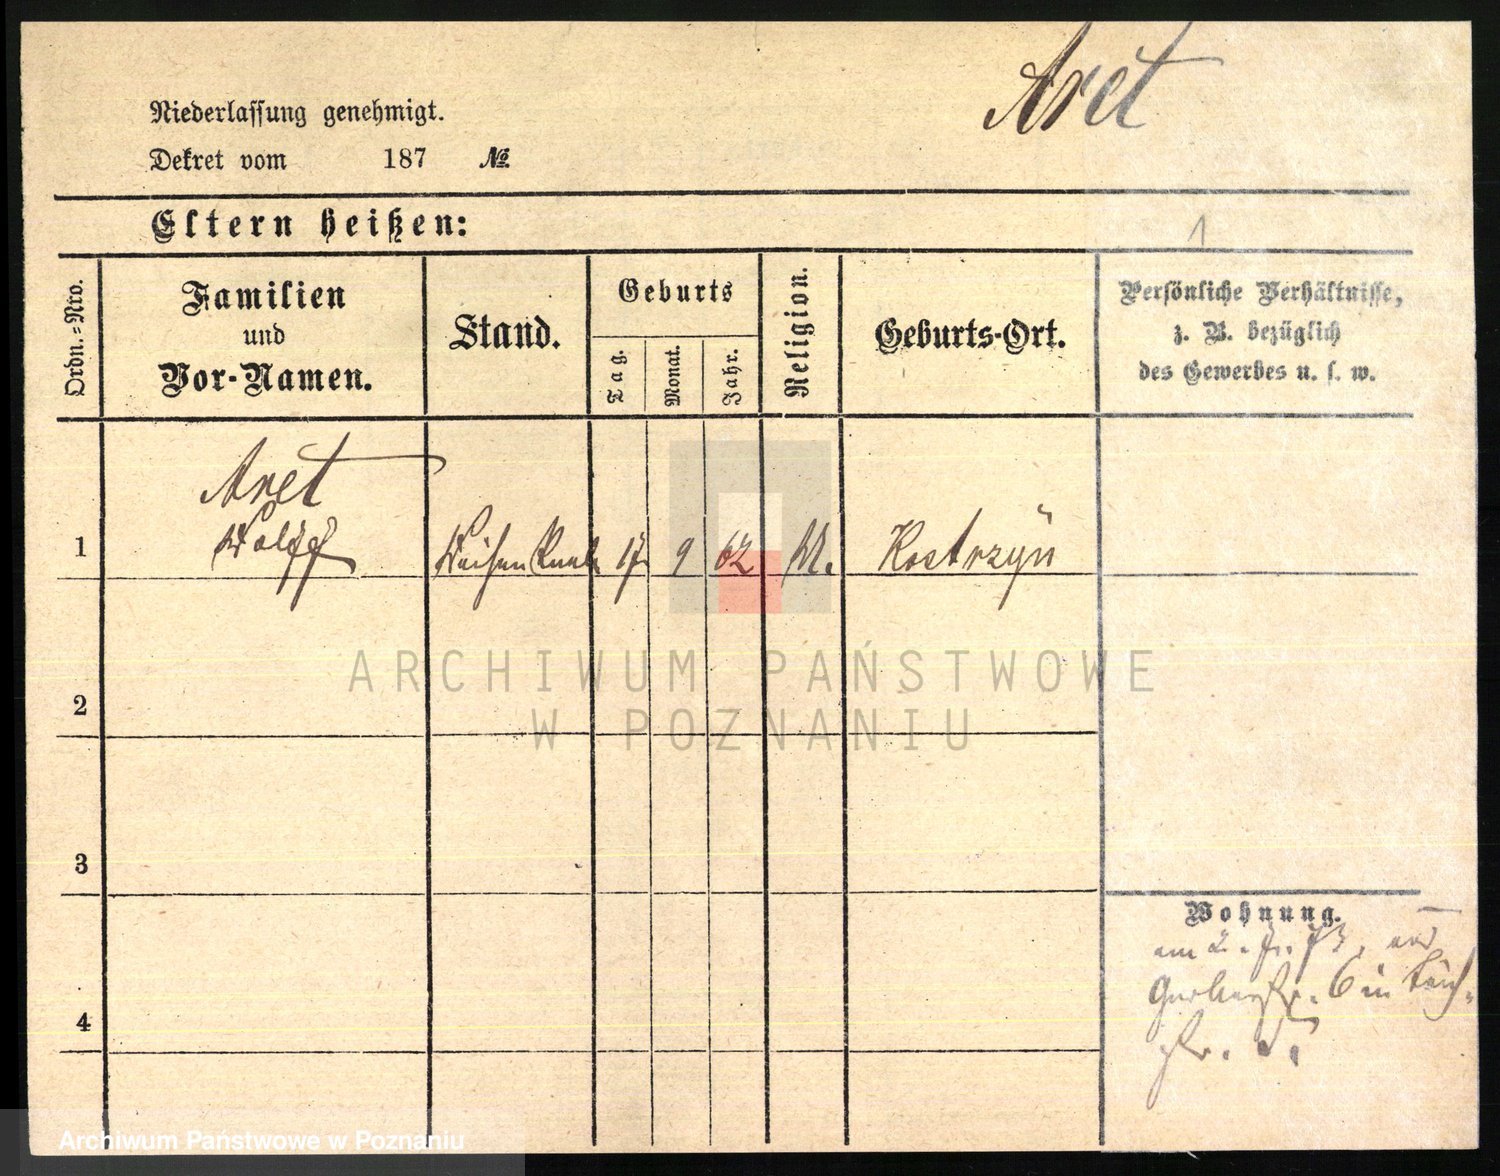 Aret
Niederlassung genehmigt.
Dekret vom 187 №
Eltern heißen:
1
Ordn.=Nro.
Familien
und
Vor-Namen.
Stand.
Geburts
Tag.
Monat.
Jahr.
Religion.
Geburts-Ort.
Persönliche Verhältnisse,
z. B. bezüglich
des Gewerbes u. s. w.
Aret
1 Wolff Waisen Knabe 17 9 62 M. Kostrzyn
ARCHIWUM PAŃSTWOWE
W POZNANIU
2
3
4
Wohnung.
am 2. 7. 73. von
Gerberstr. 6 in
str.
Archiwum Państwowe w Poznaniu